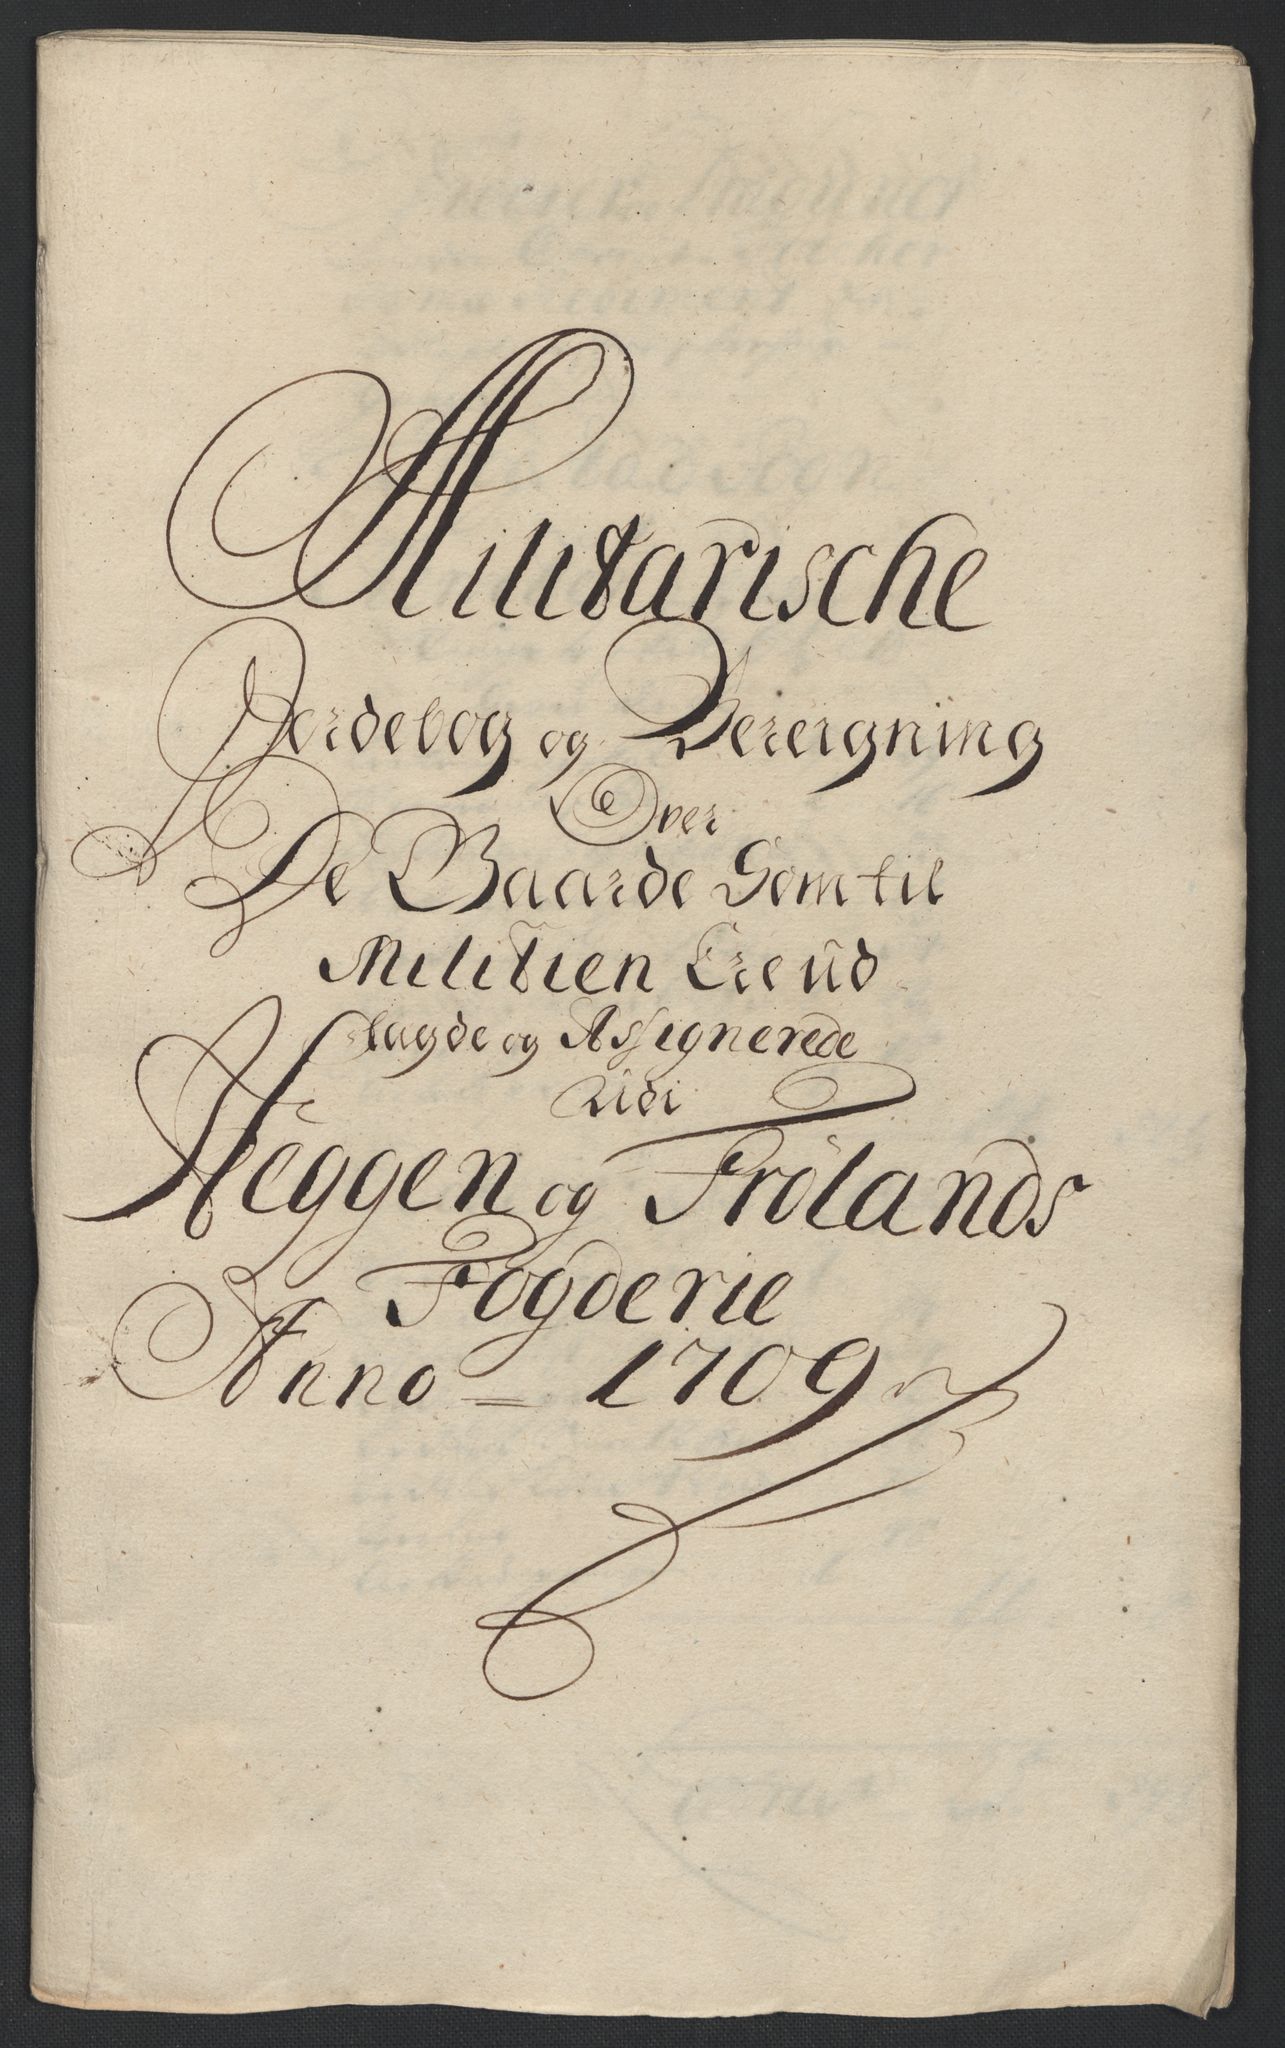 Militarische
Jordebog og Beregning
Over
De Gaarde Som til
Militien Ere ud
lagde og Assignerede
udi
Heggen og Frölands
Fogderie
Anno = 1709